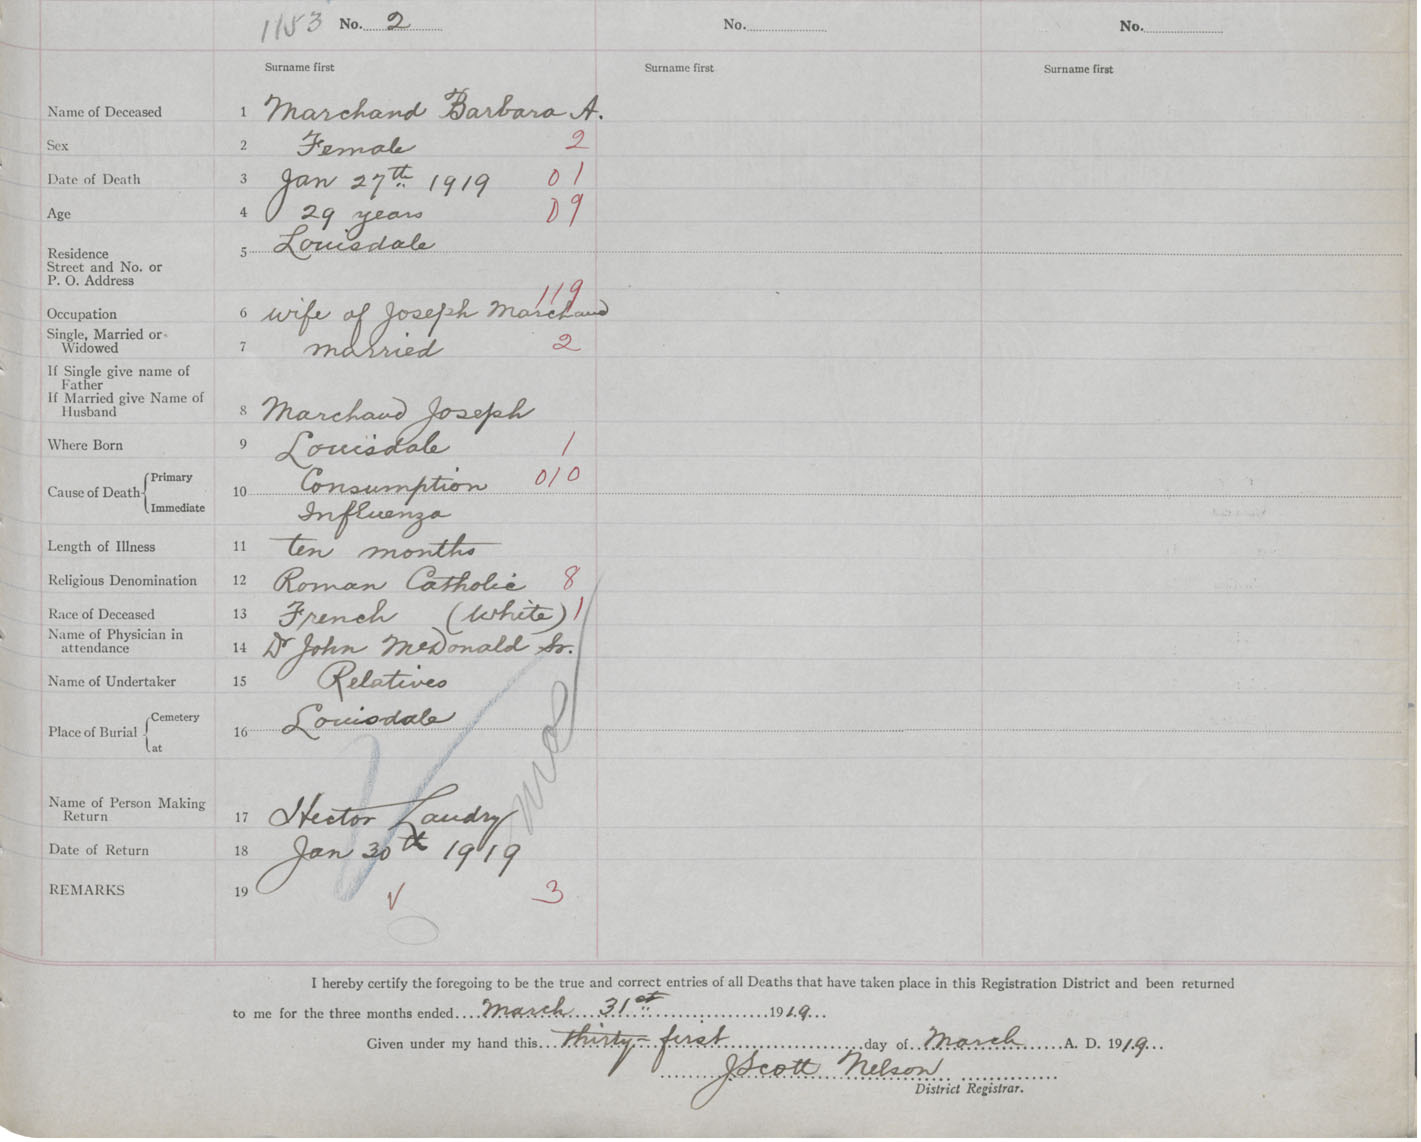 1153 No. 2 No. No.
Surname first Surname first Surname first
Name of Deceased 1 Marchand Barbara A.
Sex 2 Female 2
Date of Death 3 Jan 27th 1919 01
Age 4 29 years 09
Residence 5 Louisdale
Street and No. or
P. O. Address
119
Occupation 6 wife of Joseph Marchand
Single, Married or
Widowed 7 married 2
If Single give name of
Father
If Married give Name of
Husband 8 Marchand Joseph
Where Born 9 Louisdale 1
Cause of Death Primary 10 Consumption 010
Immediate Influenza
Length of Illness 11 ten months
Religious Denomination 12 Roman Catholic 8
Race of Deceased 13 French (White) 1
Name of Physician in
attendance 14 Dr John McDonald Sr.
Name of Undertaker 15 Relatives
Place of Burial Cemetery 16 Louisdale
at
Name of Person Making
Return 17 Hector Landry
Date of Return 18 Jan 30th 1919
REMARKS 19 3
I hereby certify the foregoing to be the true and correct entries of all Deaths that have taken place in this Registration District and been returned
to me for the three months ended March 31st 1919
Given under my hand this thirty-first day of March A. D. 1919
J Scott Nelson
District Registrar.